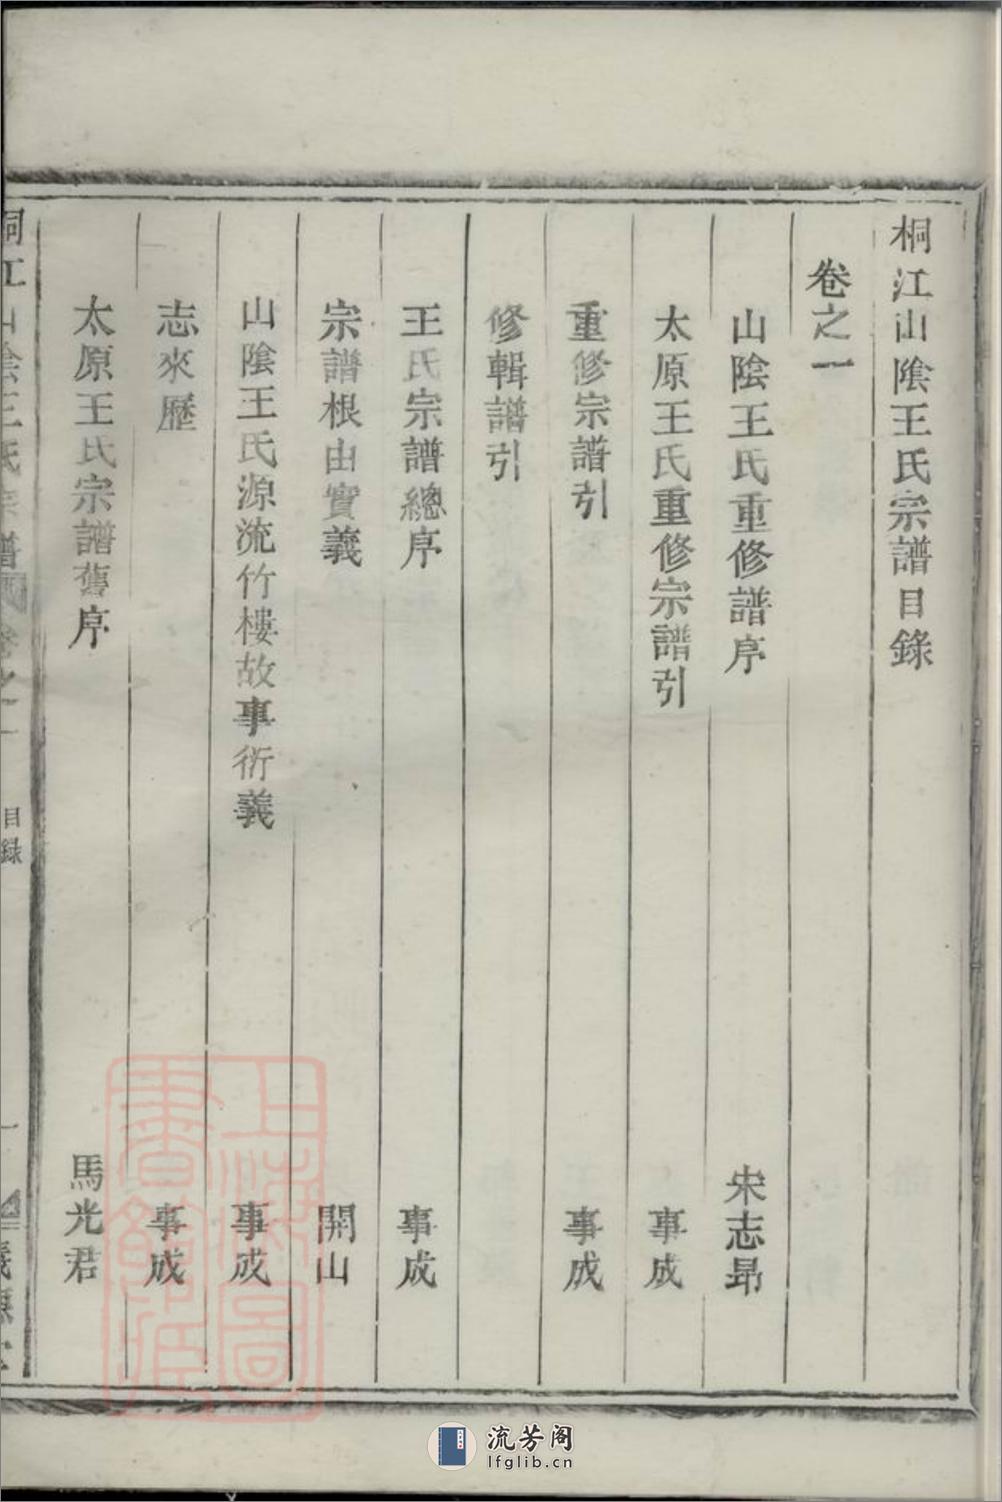 桐江山陰王氏宗譜目錄
卷之一
山陰王氏重修譜序 宋志昂
太原王氏重修宗譜引 事成
重修宗譜引 事成
修輯譜引
王氏宗譜總序 事成
宗譜根由實義 開山
山陰王氏源流竹樓故事衍義 事成
志來歷 事成
太原王氏宗譜舊序 馬光君
桐江山陰王氏宗譜 卷之一 目錄 一
上海圖書館藏
流芳阁
lfglib.cn